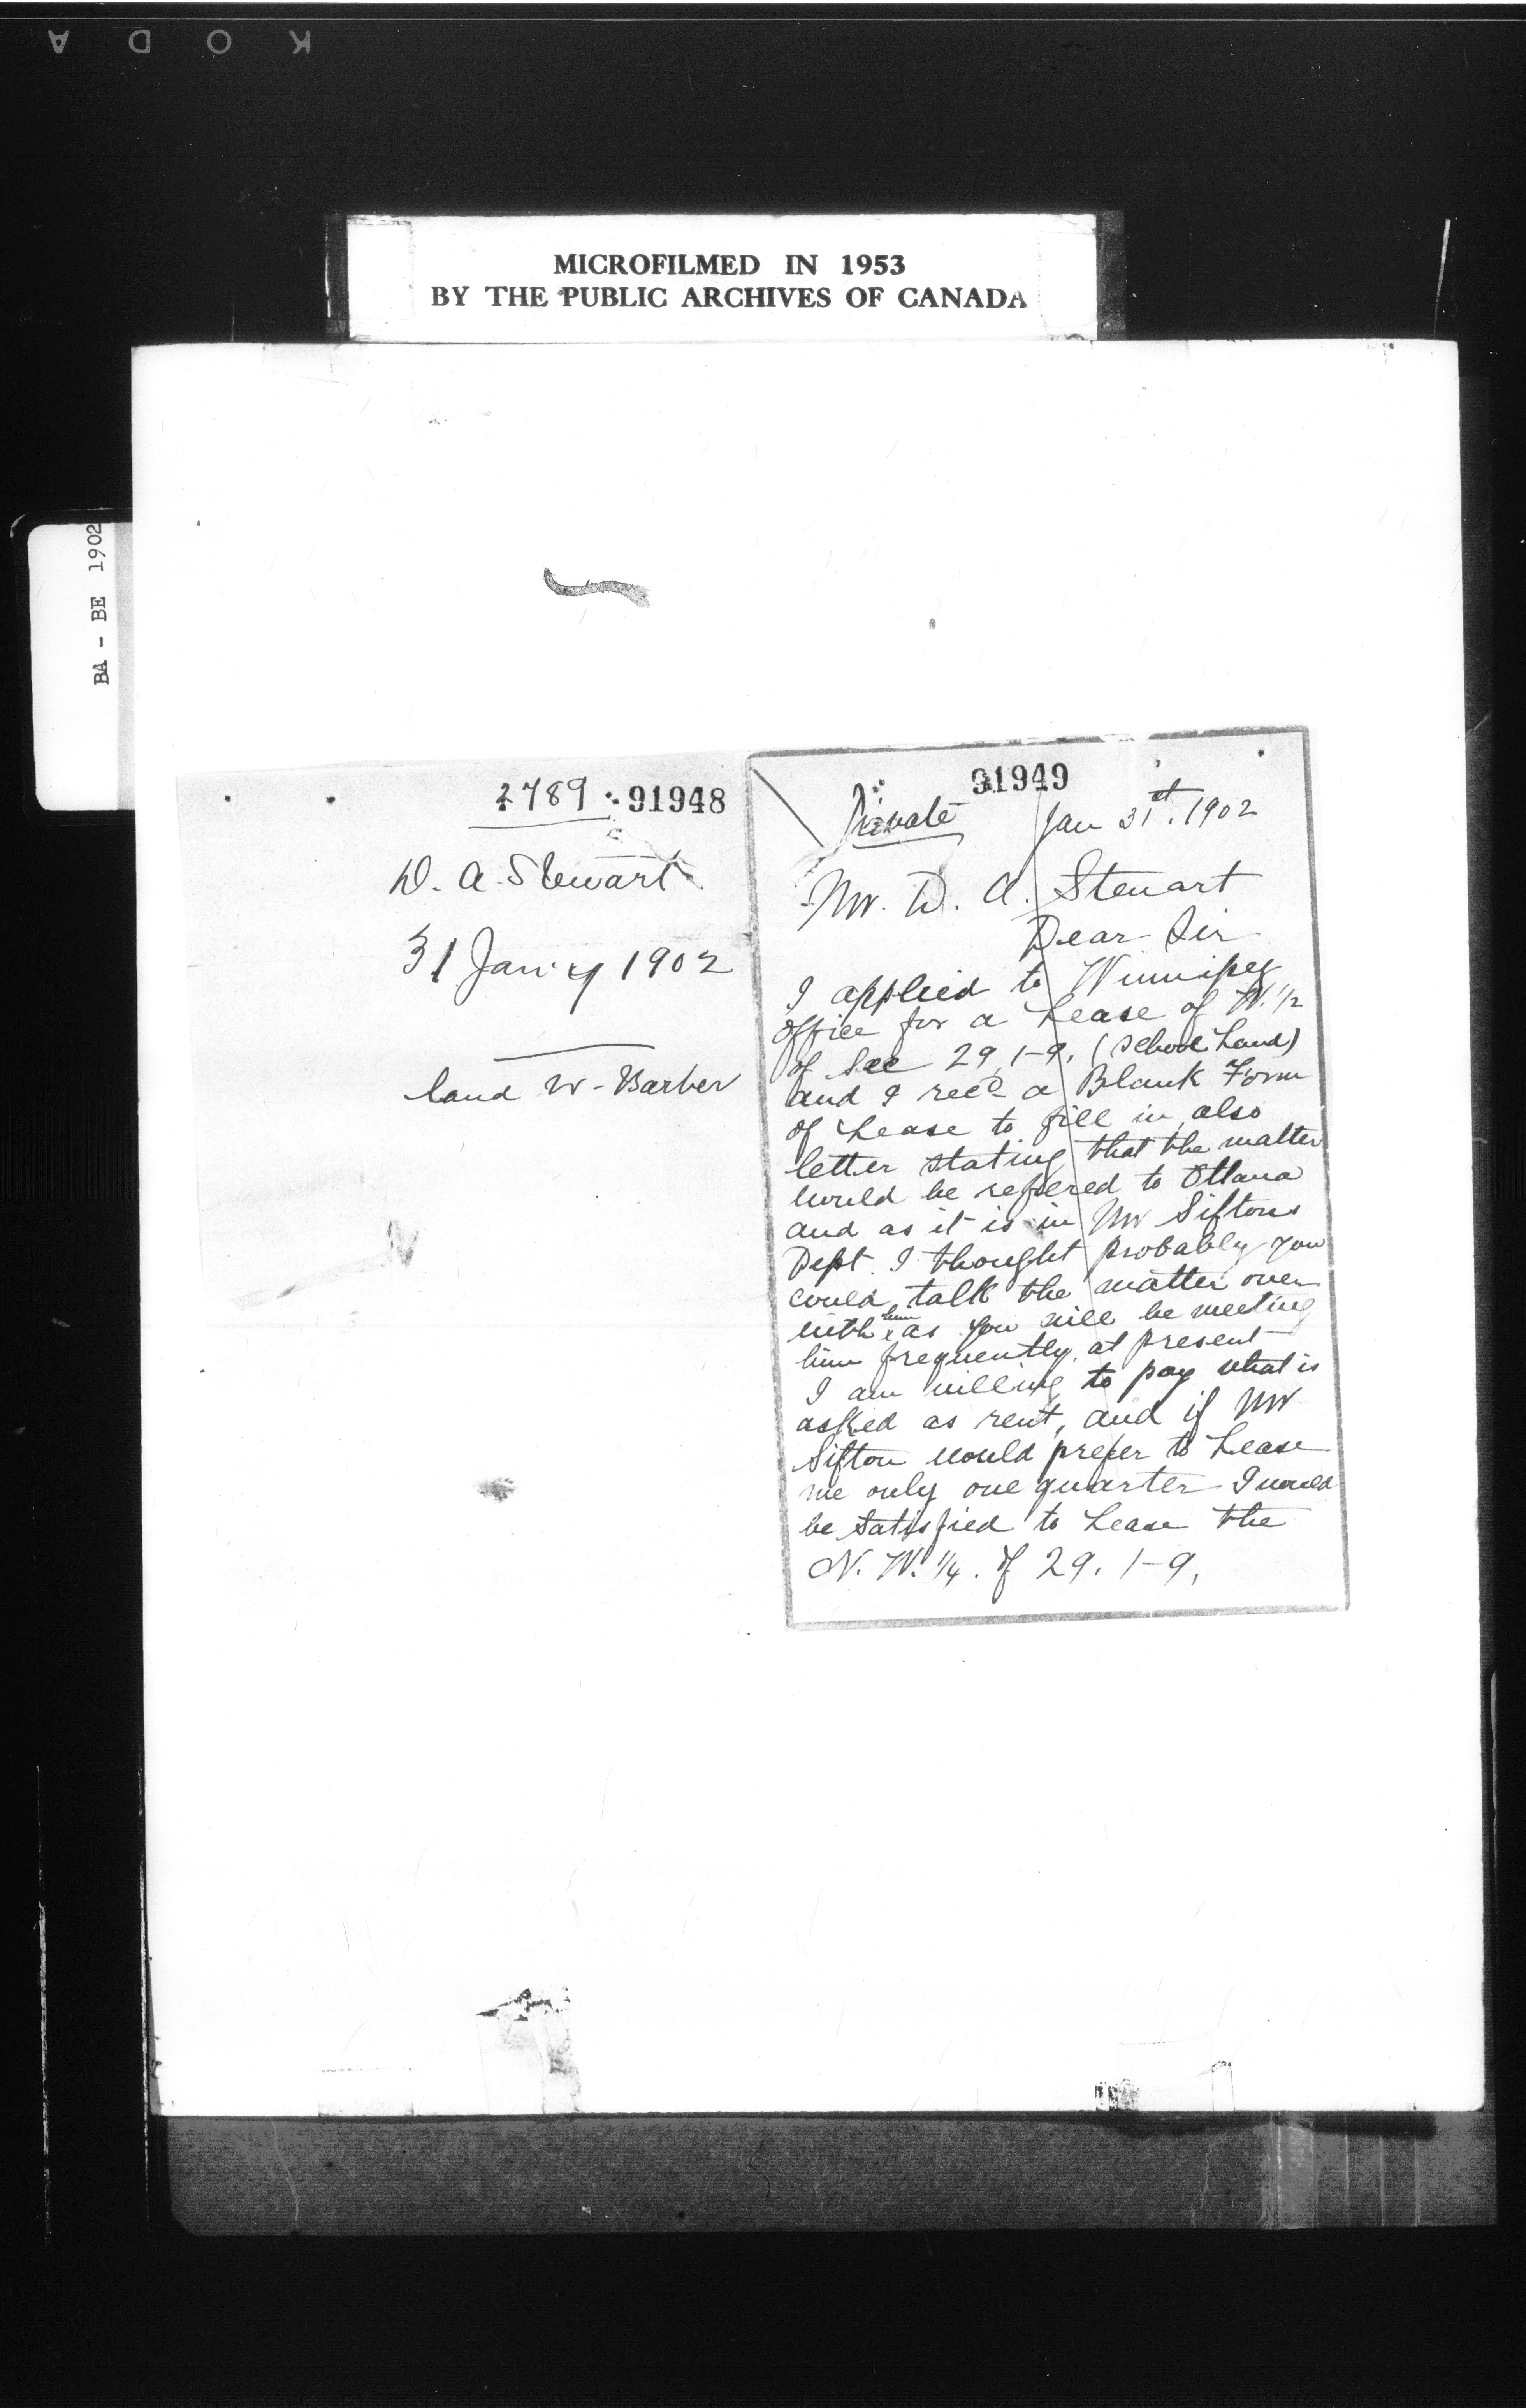 KODA
MICROFILMED IN 1953
BY THE PUBLIC ARCHIVES OF CANADA
BA - BE 1902
2789 91948
D. A. Stewart
31 Jan'y 1902
land W - Barber
91949
Private Jan 31st. 1902
Mr. D. A. Stewart
Dear Sir
I applied to Winnipeg
office for a Lease of W. 1/2
of Sec 29, 1-9, (School Land)
and I rec'd a Blank Form
of Lease to fill in, also
letter stating that the matter
would be refered to Ottawa
and as it is in Mr Siftons
Dept. I thought probably you
could talk the matter over
with him as you will be meeting
him frequently, at present
I am willing to pay what is
asked as rent, and if Mr
Sifton would prefer to Lease
me only one quarter I would
be satisfied to Lease the
N. W. 1/4. of 29. 1-9,